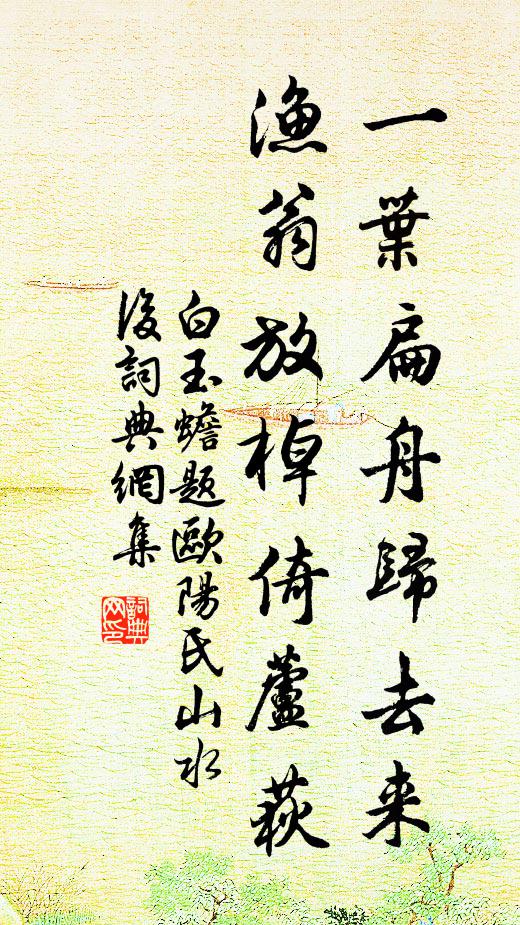 一葉扁舟歸去来
漁翁放棹倚蘆荻
白玉蟾題歐陽氏山水
後詞典網集
詞典
网印